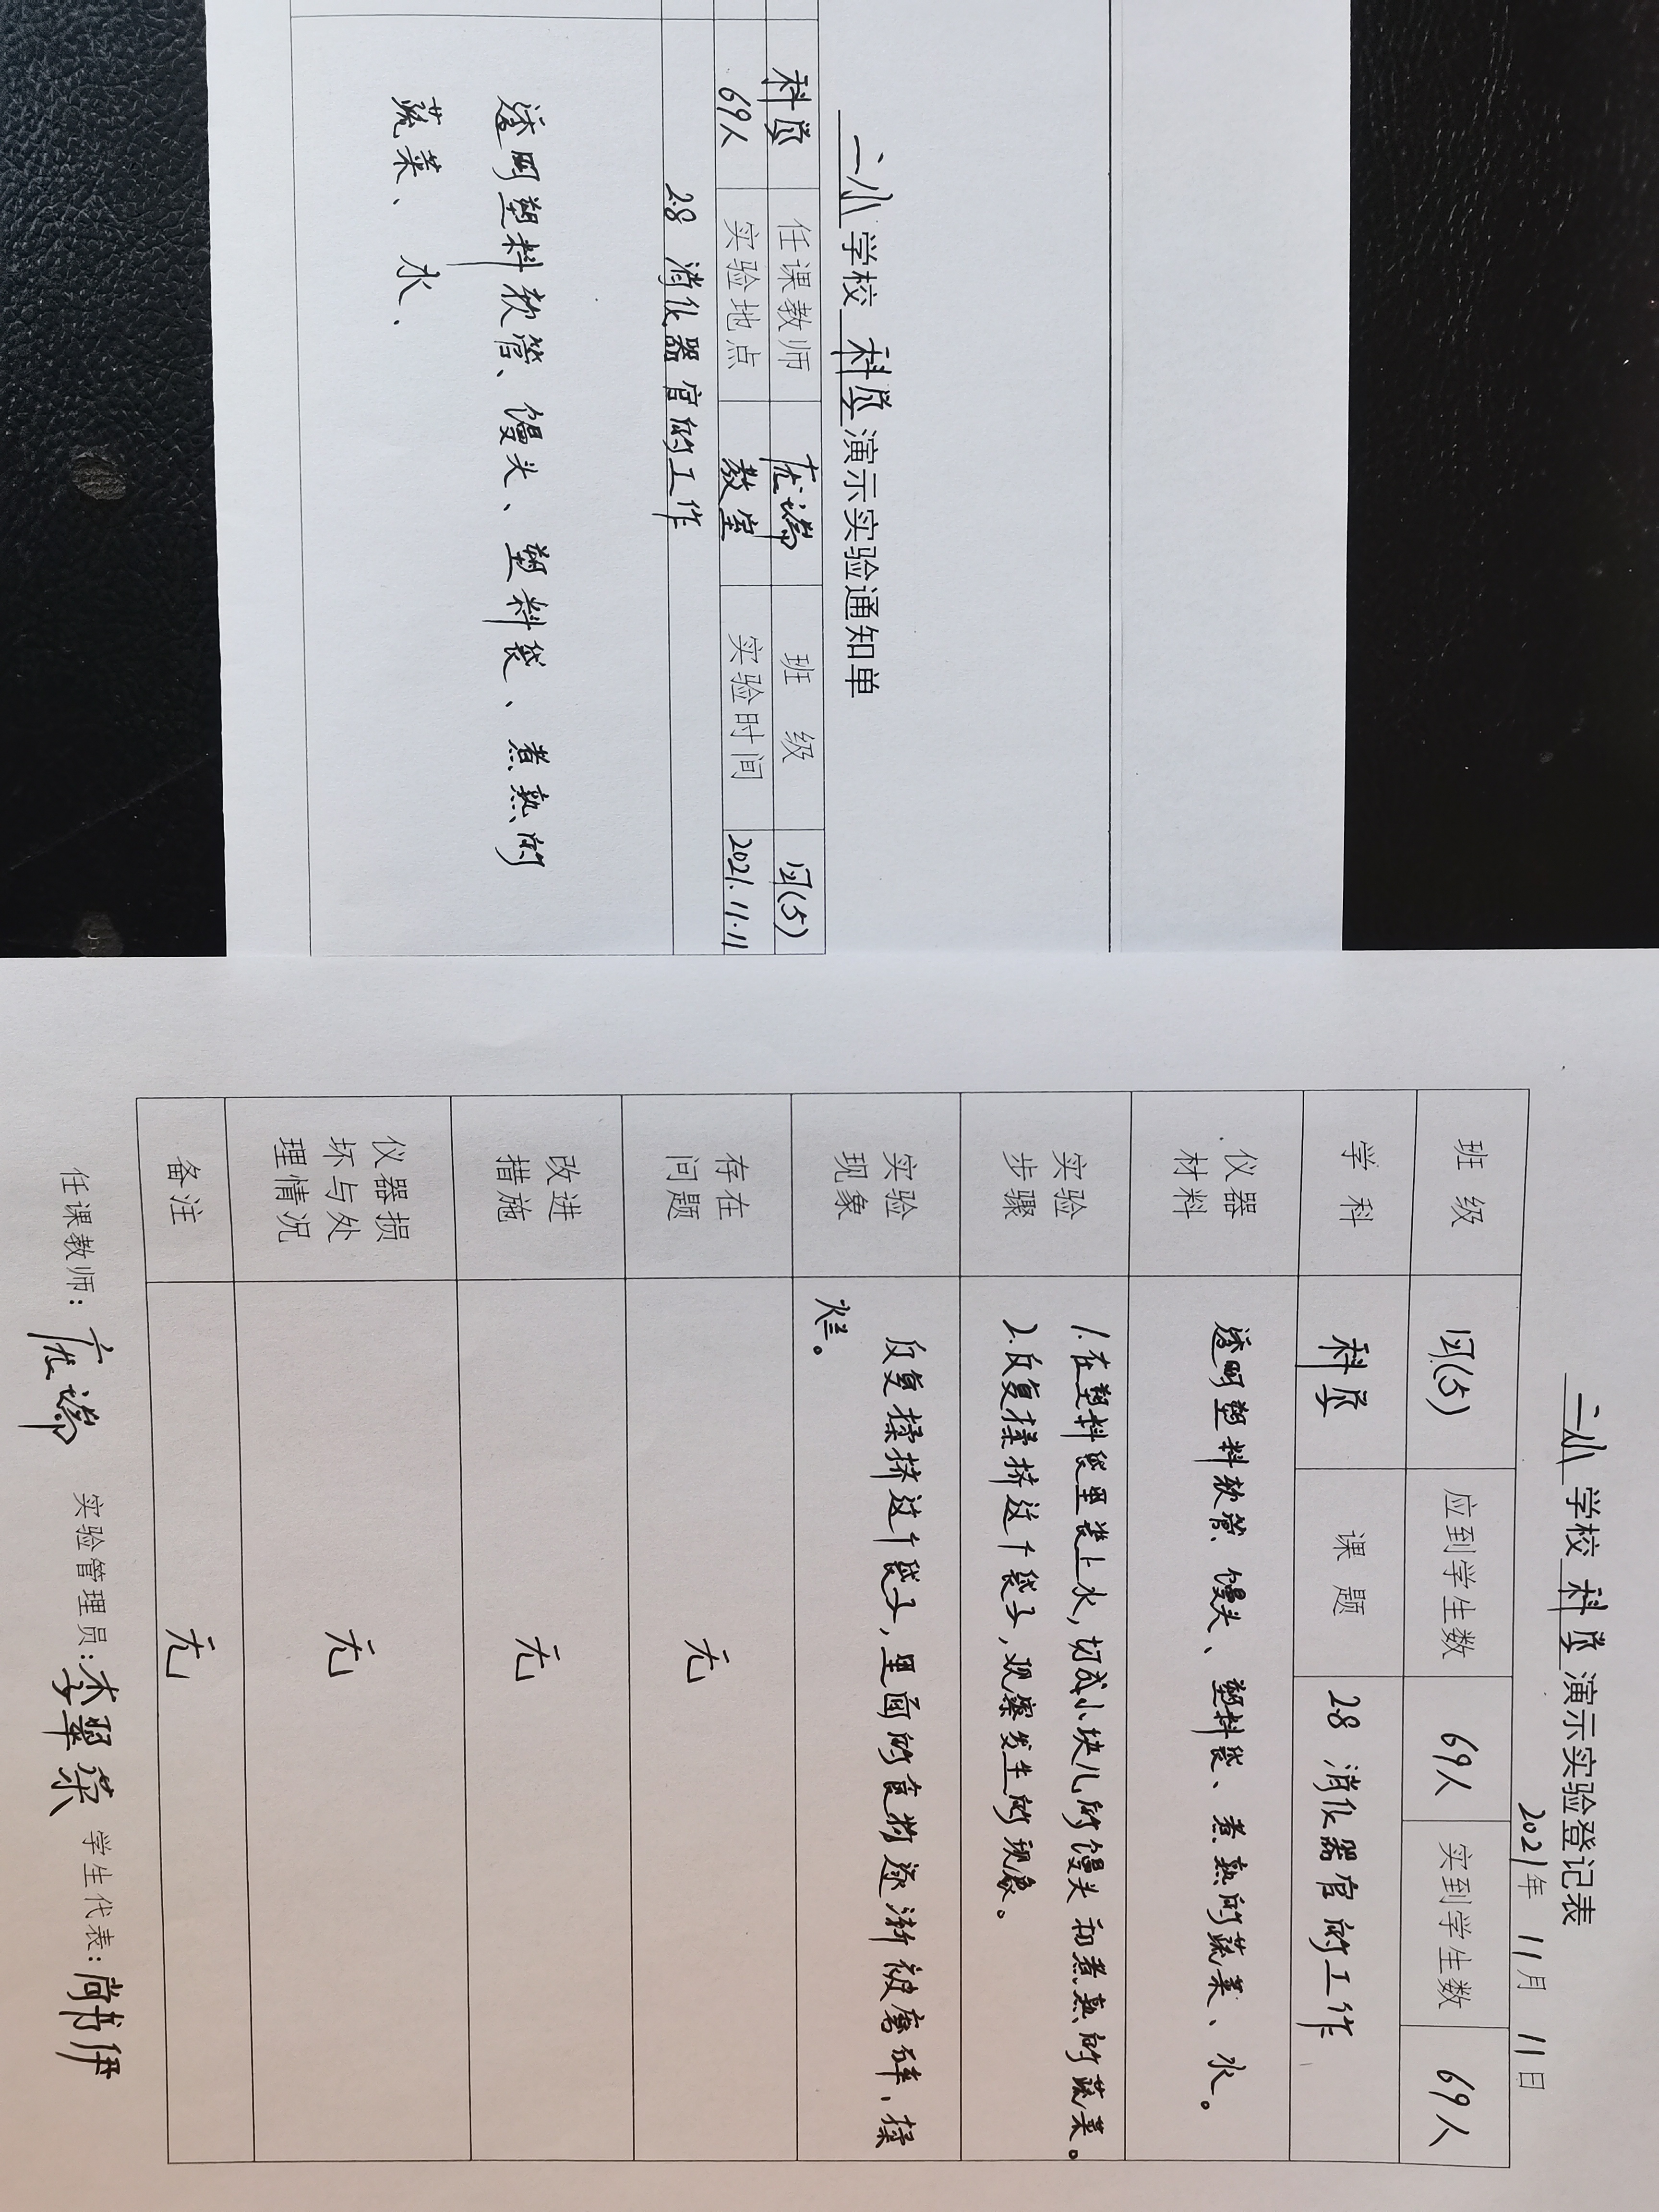 二小学校科学演示实验通知单
科学 任课教师 班 级 四(5)
69人 实验地点 教室 实验时间 2021.11.11
2.8 消化器官的工作
透明塑料软管、馒头、塑料袋、煮熟的
蔬菜、水.
二小学校科学演示实验登记表
2021年 11月 11日
班 级 四(5) 应到学生数 69人 实到学生数 69人
学 科 科学 课 题 2.8 消化器官的工作
仪器
材料
透明塑料软管、馒头、塑料袋、煮熟的蔬菜、水。
实验
步骤
1.在塑料袋里装上水,切成小块儿的馒头和煮熟的蔬菜。
2.反复揉挤这个袋子,观察发生的现象。
实验
现象
反复揉挤这个袋子,里面的食物逐渐被磨碎、揉
烂。
存在
问题
无
改进
措施
无
仪器损
坏与处
理情况
无
备注 无
任课教师: 实验管理员:李翠荣 学生代表:尚书伊